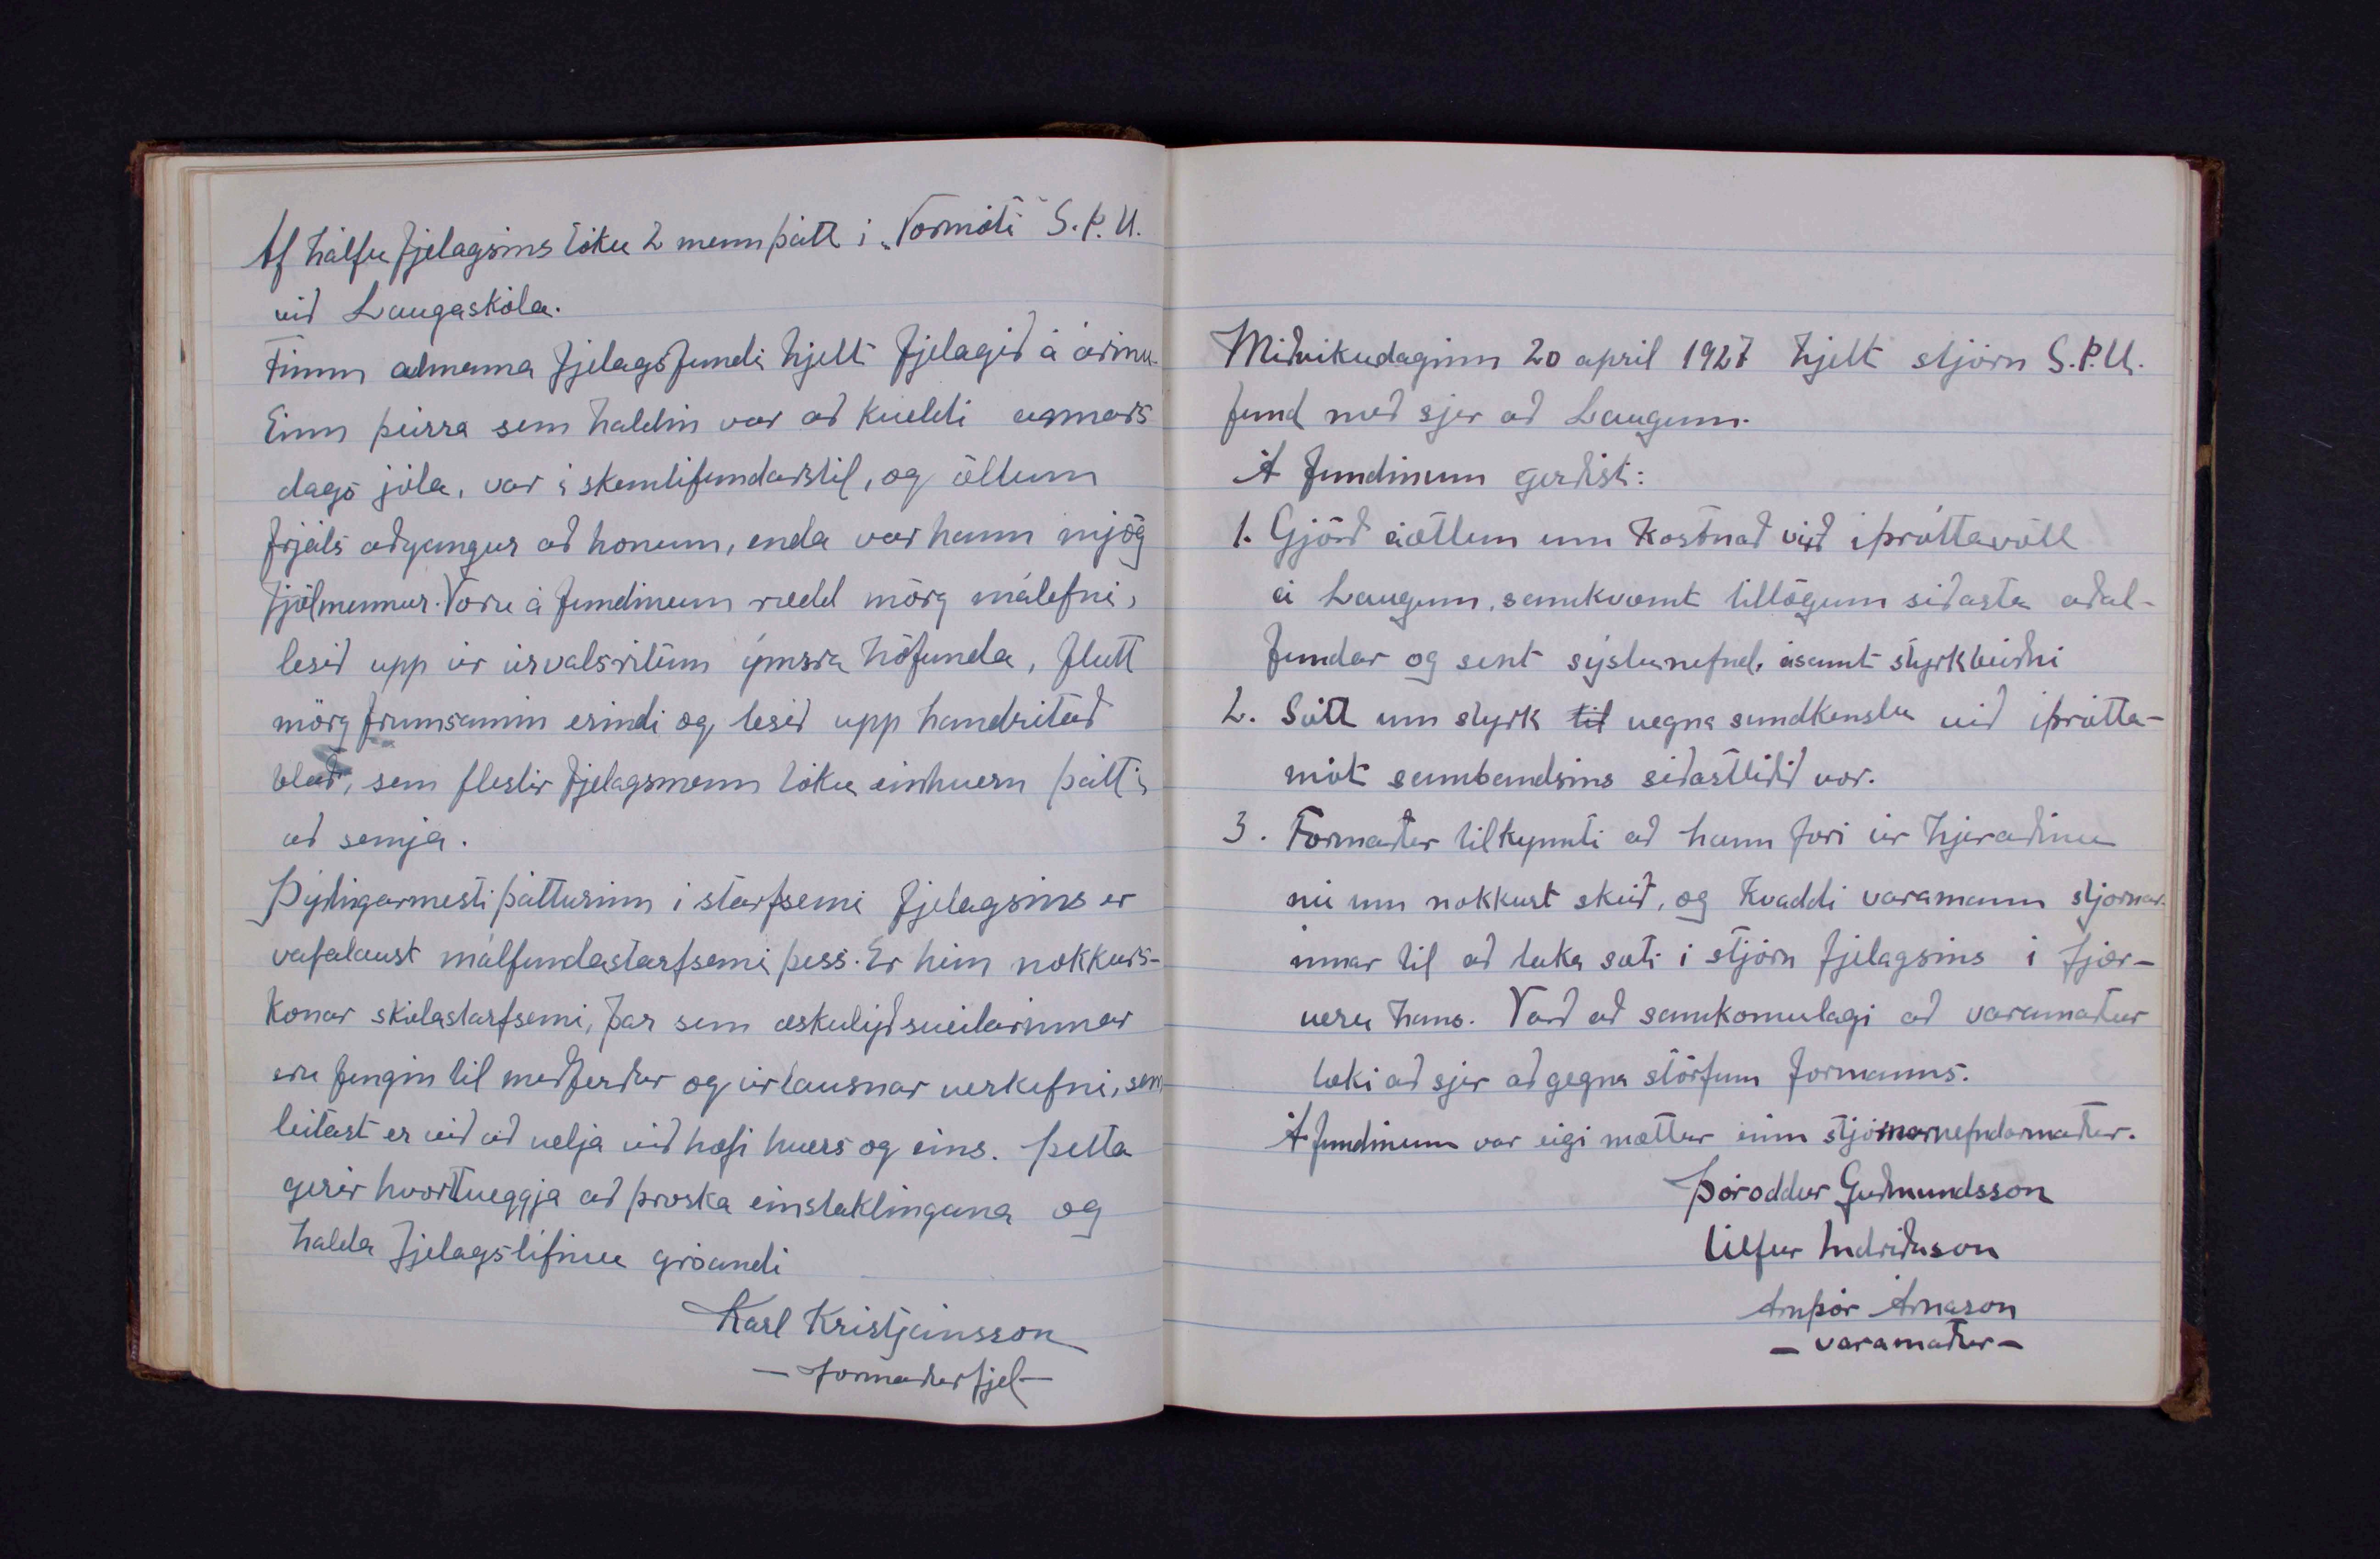 Af hálfu fjelagsins tóku 2 menn þátt í „Vormóti" S.Þ.U.
við Laugaskóla.
Fimm almenna fjelagsfundi hjelt fjelagið á árinu.
Einn þeirra sem haldin var að kveldi annars
dags jóla, var í skemtifundarstil, og öllum
frjáls aðgangur að honum, enda var hann mjög
fjölmennur. Voru á fundinum rædd mörg málefni,
lesið upp úr úrvalsritum ýmsra höfunda, flutt
mörg frumsamin erindi og lesið upp handritað
blað, sem flestir fjelagsmenn tóku einhvern þátt í
að semja.
Þýðingarmesti þátturinn í starfsemi fjelagsins er
vafalaust málfundastarfsemi þess. Er hún nokkurs-
konar skólastarfsemi, þar sem æskulýð sveitarinnar
eru fengin til meðferðar og úrlausnar verkefni, sem
leitast er við að velja við hæfi hvers og eins. Þetta
gerir hvortveggja að þroska einstaklingana og
halda fjelagslífinu gróandi
Karl Kristjánsson
- formaður fjel -
Miðvikudaginn 20 april 1927 hjelt stjórn S.Þ.U.
fund með sjer að Laugum.
Á fundinum gerðist:
1. Gjörð áætlun um kostnað við íþróttavöll
á Laugum, samkvæmt tillögum síðasta aðal-
fundar og sent sýslunefnd, ásamt styrkbeiðni
2. Sótt um styrk til vegna sundkenslu við íþrótta-
mót sambandsins síðastliðið vor.
3. Formaður tilkynnti að hann færi úr hjeraðinu
nú um nokkurt skeið, og kvaddi varamann stjórnar-
innar til að taka sæti í stjórn fjelagsins í fjær-
veru hans. Varð að samkomulagi að varamaður
tæki að sjer að gegna störfum formanns.
Á fundinum var eigi mættur einn stjórnarnefndarmaður.
Þóroddur Guðmundsson
Úlfur Indriðason
Arnþór Árnason
- varamaður -